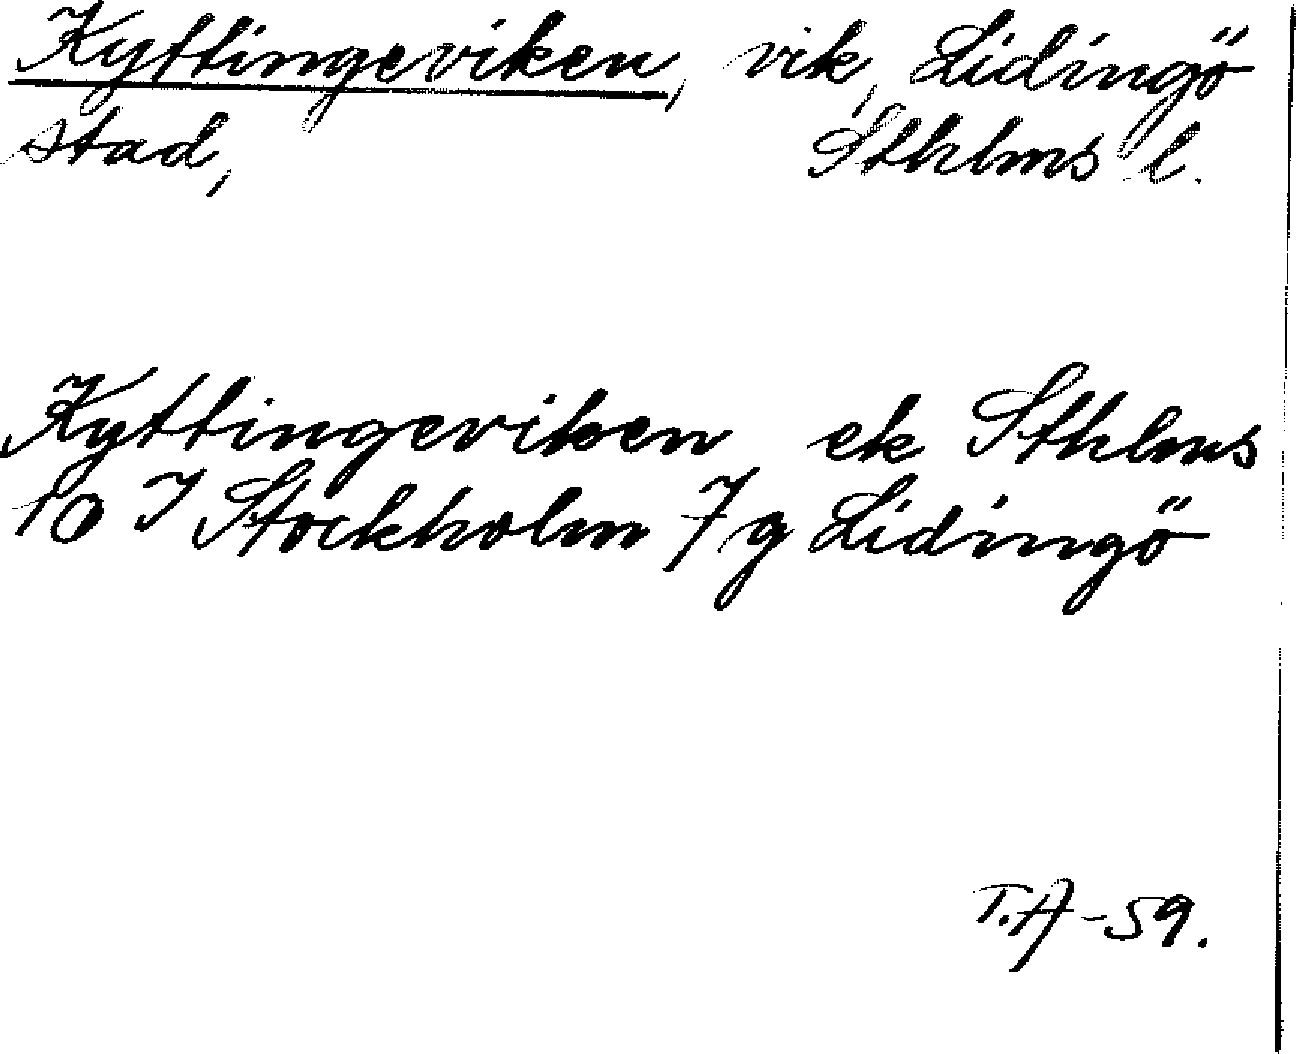 Kyttingeviken, vik, Lidingö
stad, Sthlms l.
Kyttingeviken ek Sthlms
10 I Stockholm 7 g Lidingö
T.A-59.